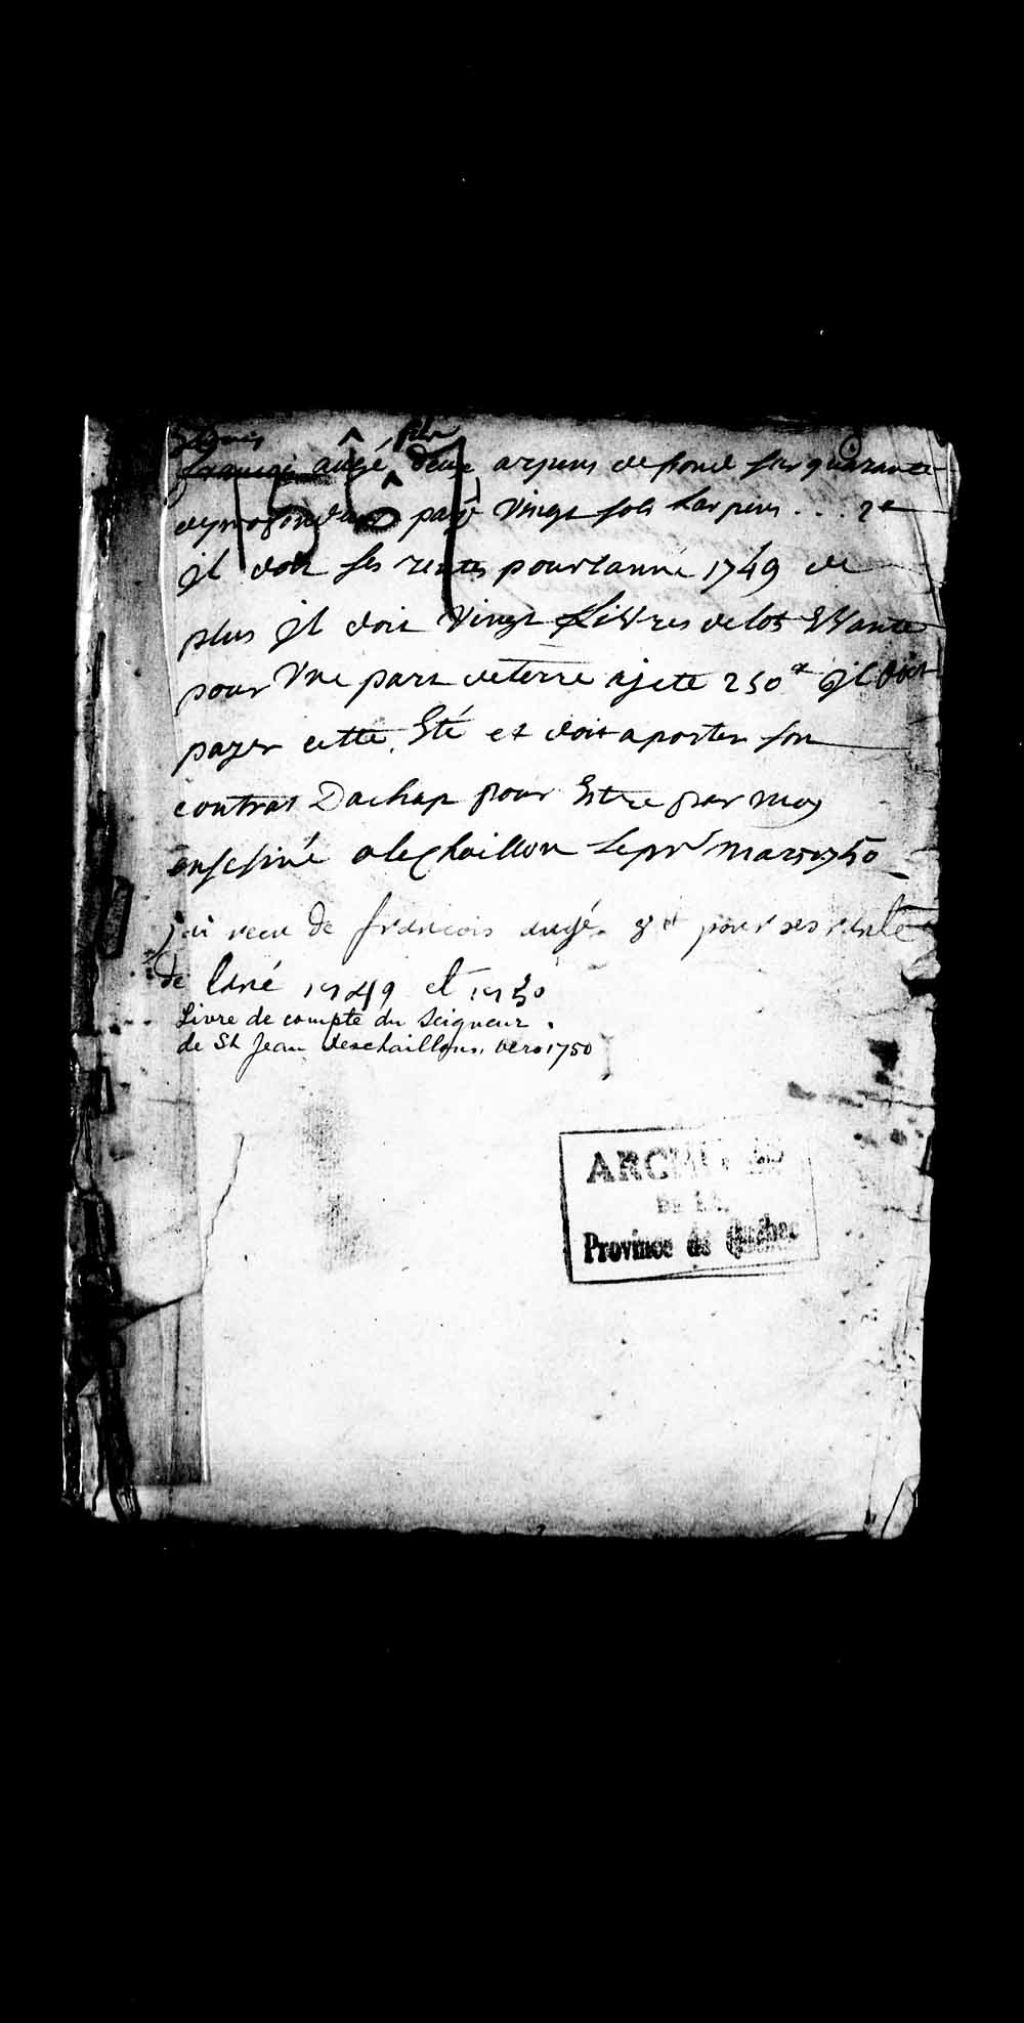 françois augé deux arpens de front sur quarante
de profondeur paye Vingt sols Larpens . . . 2#
jl doit ses rentes pour lanné 1749 de
plus jl doit Vingt Livres de lots Et Vante
pour Vne part de terre ajete 250# jl doit
payer cette Eté et doit aporter son
contrat Dachapt pour Estre par moy
ensesiné a lechaillon Le pr mars 1750
jai receu de francois augé 8# pour ses rente
de lané 1749 et 1750
Livre de compte du Seigneur
de St Jean deschaillons. Vers 1750
ARCHIVES
DE LA
Province de Québec